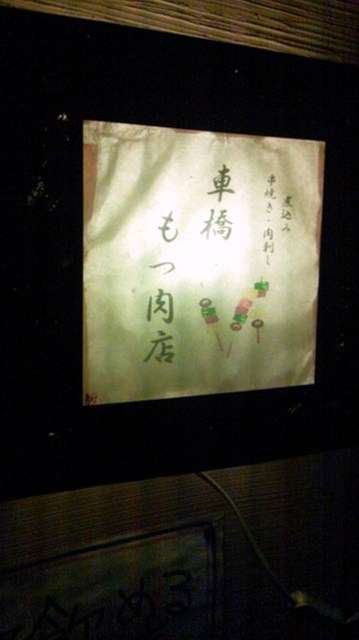 煮込み
串焼き・肉刺し
車橋
もつ肉店
飲める